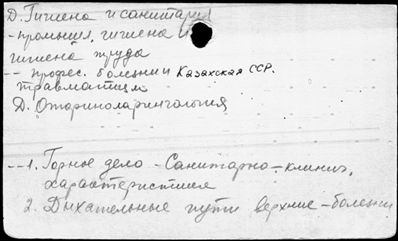 Д. Гигиена и санитария
- промышл. гигиена и
гигиена труда
-- профес. болезни и Казахская ССР.
травматизм
Д. Оториноларингология
-- 1. Горное дело - Санитарно-клинич.
характеристике
2. Дыхательные пути верхние - болезни